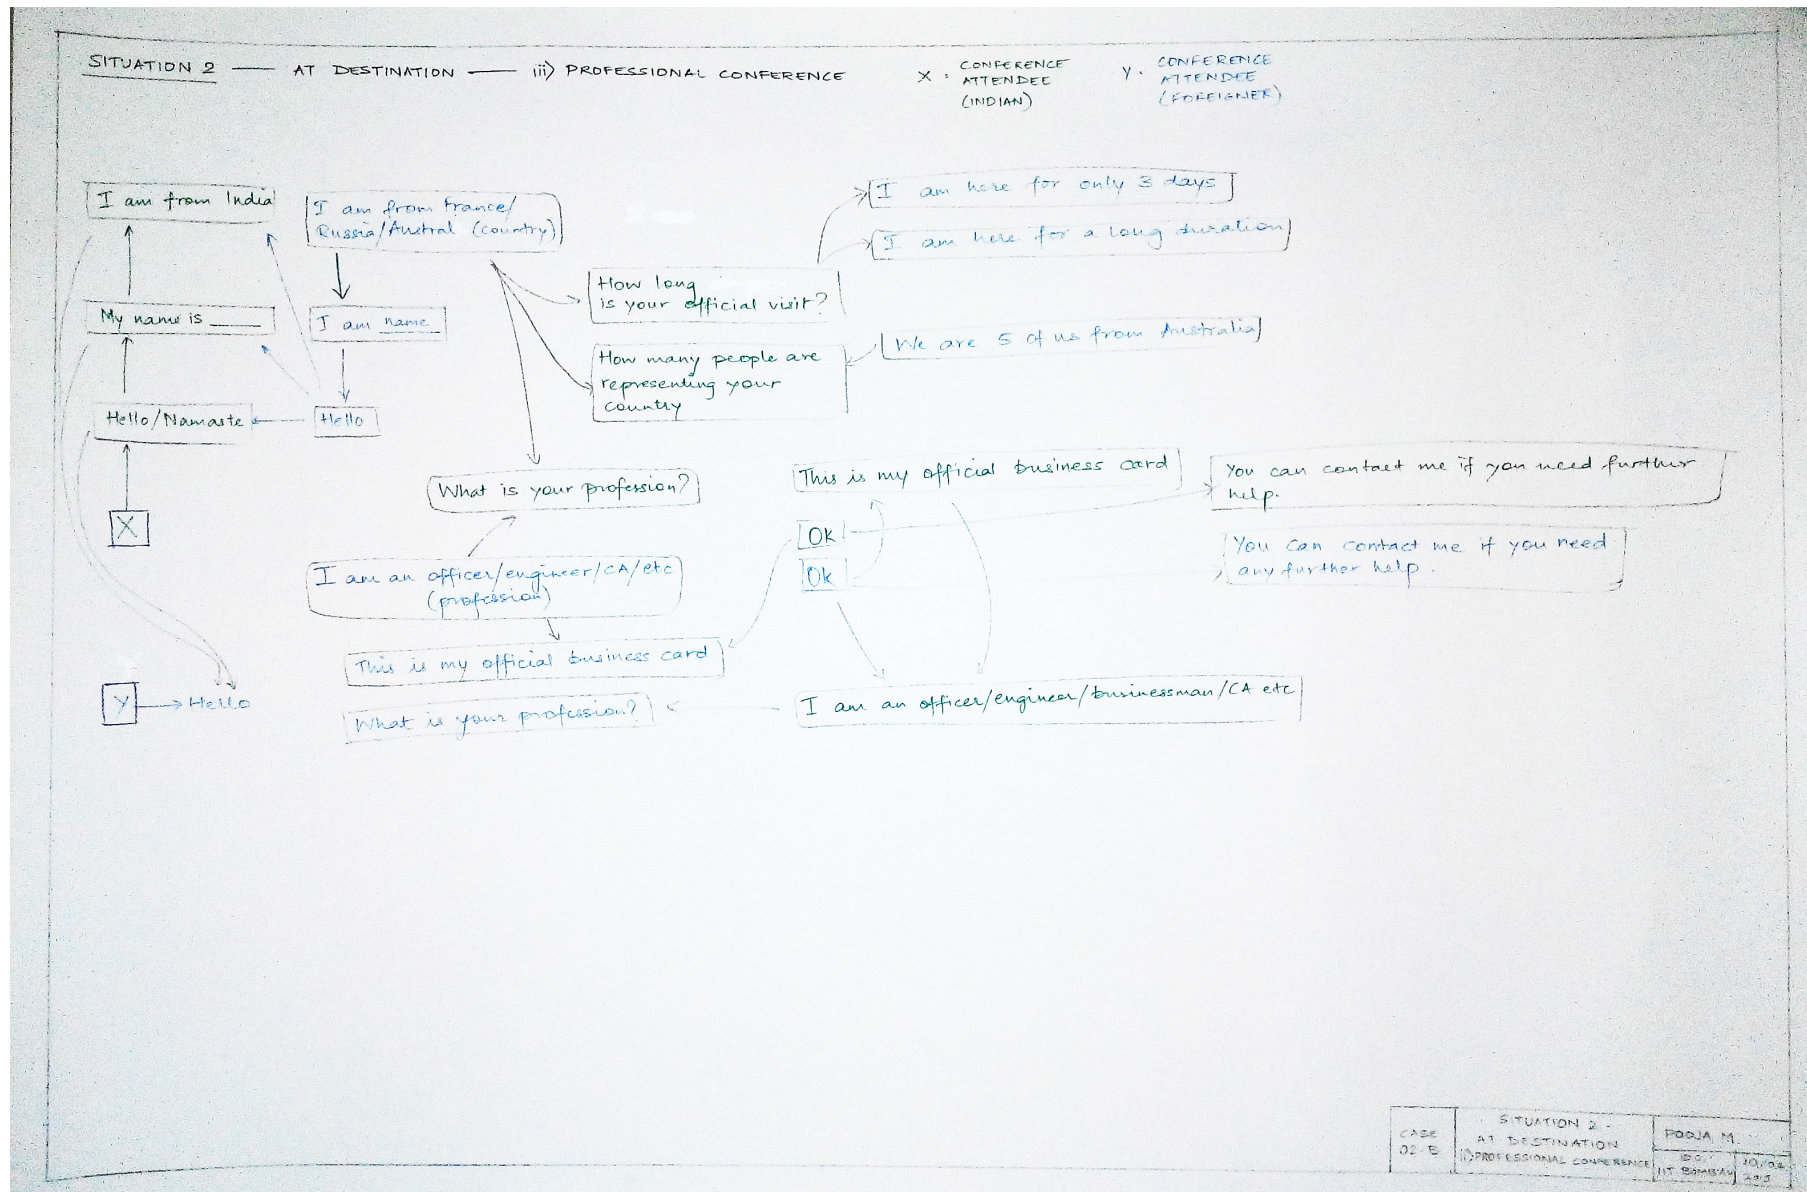 SITUATION 2 — AT DESTINATION — iii) PROFESSIONAL CONFERENCE
X . CONFERENCE
ATTENDEE
(INDIAN)
Y . CONFERENCE
ATTENDEE
(FOREIGNER)
I am from India
I am from France/
Russia/Austral (country)
I am here for only 3 days
I am here for a long duration
How long
is your official visit?
My name is ____
I am name
We are 5 of us from Australia
How many people are
representing your
country
Hello/Namaste
Hello
What is your profession?
This is my official business card
You can contact me if you need further
help.
X
Ok
Ok
You can contact me if you need
any further help.
I am an officer/engineer/CA/etc
(profession)
This is my official business card
Y
Hello
What is your profession?
I am an officer/engineer/businessman/CA etc
CASE
SITUATION 2 -
AT DESTINATION
PROFESSIONAL CONFERENCE
POOJA M.
IIT BOMBAY